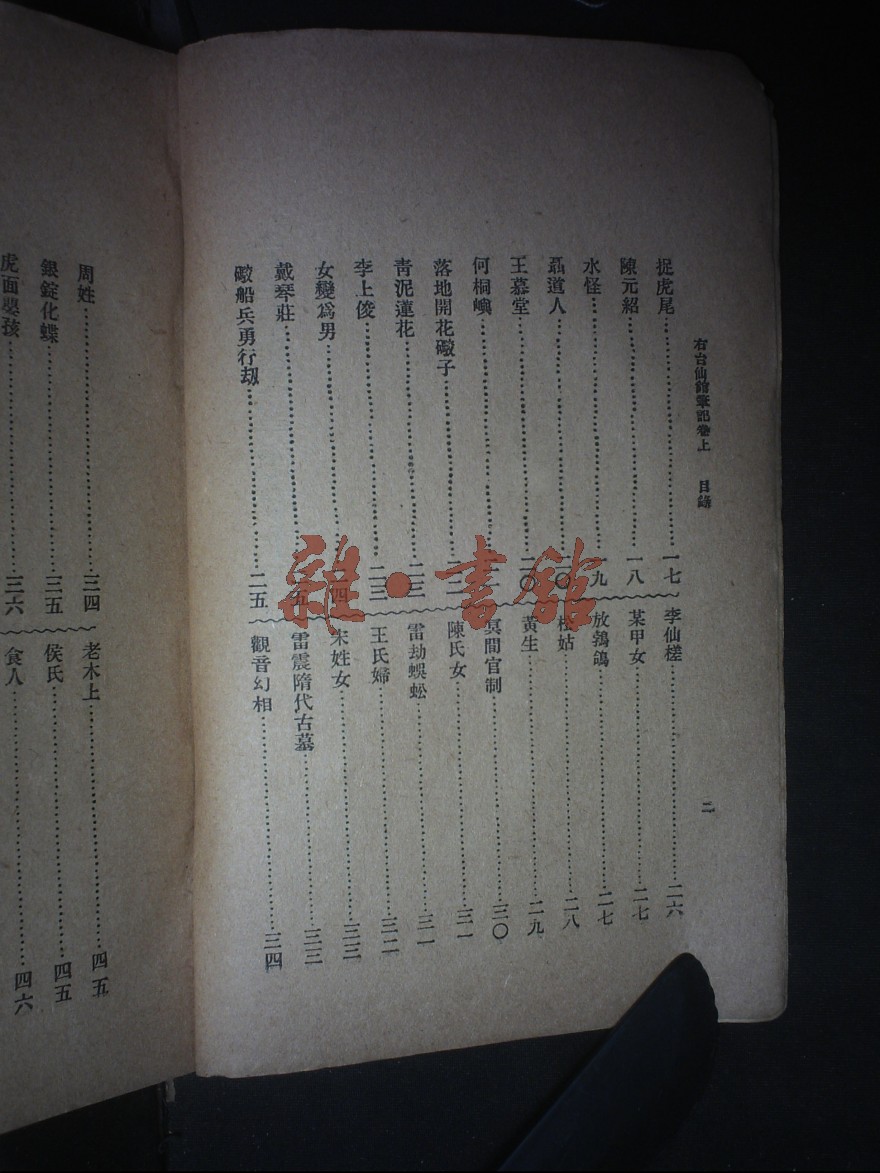 右台仙館筆記卷上 目錄
二
捉虎尾 一七
陳元紹 一八
水怪 一九
聶道人 二〇
王慕堂 二〇
何桐嶼
落地開花礮子 二二
青泥蓮花 二三
李上俊 二三
女變爲男 二四
戴琴莊 二五
礮船兵勇行刼 二五
李仙槎 二六
某甲女 二七
放鵓鴿 二七
姑 二八
黃生 二九
冥間官制 三〇
陳氏女 三一
雷劫蜈蚣 三一
王氏婦 三二
宋姓女 三三
雷震隋代古墓 三三
觀音幻相 三四
周姓 三四
銀錠化蝶 三五
虎面嬰孩 三六
老木上 四五
侯氏 四五
食人 四六
雜·書館